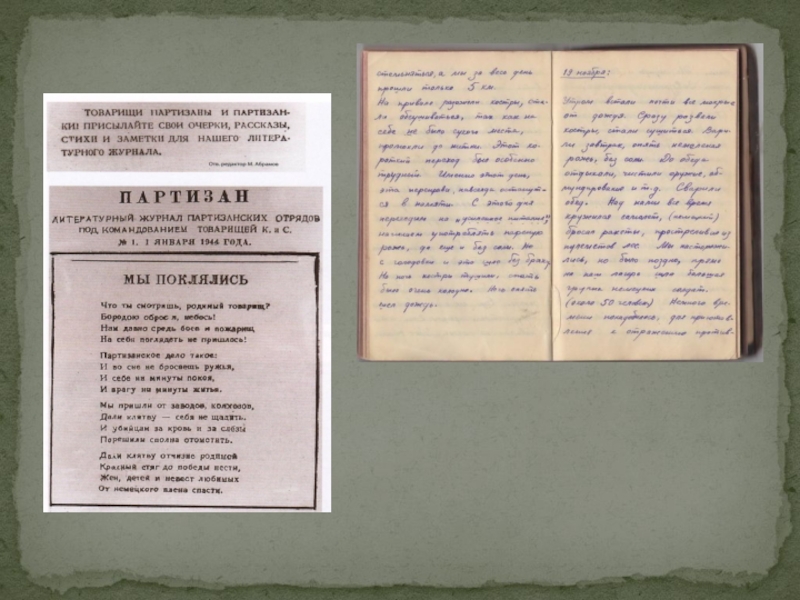 ТОВАРИЩИ ПАРТИЗАНЫ И ПАРТИЗАН-
КИ! ПРИСЫЛАЙТЕ СВОИ ОЧЕРКИ, РАССКАЗЫ,
СТИХИ И ЗАМЕТКИ ДЛЯ НАШЕГО ЛИТЕРА-
ТУРНОГО ЖУРНАЛА.
Отв. редактор М. Абрамов
ПАРТИЗАН
ЛИТЕРАТУРНЫЙ ЖУРНАЛ ПАРТИЗАНСКИХ ОТРЯДОВ
ПОД КОМАНДОВАНИЕМ ТОВАРИЩЕЙ К. и С.
№ 1. 1 ЯНВАРЯ 1944 ГОДА.
МЫ ПОКЛЯЛИСЬ
Что ты смотришь, родимый товарищ?
Бородою оброс я, небось!
Нам давно средь боев и пожарищ
На себя поглядеть не пришлось!
Партизанское дело такое:
И во сне не бросаешь ружья,
И себе ни минуты покоя,
И врагу ни минуты житья.
Мы пришли от заводов, колхозов,
Дали клятву — себя не щадить.
И убийцам за кровь и за слёзы
Порешили сполна отомстить.
Дали клятву отчизне родимой
Красный стяг до победы нести,
Жен, детей и невест любимых
От немецкого плена спасти.
а мы за весь день
прошли только 5 км.
На привале разожгли костры, ста-
ли так как на
себе не было сухого места,
промокли до нитки. Этот ко-
роткий переход был особенно
труден. Именно этот день,
навсегда останет-
ся в памяти. С этого дня
перешли на
начали употреблять пареную
рожь, да еще и без соли. Но
с голодухи и это шло без браку.
На ночь костры тушили, спать
было очень холодно. Ночь опять
шел дождь.
19 ноября:
Утром встали почти все мокрые
от дождя. Сразу развели
костры, стали сушиться. Вари-
ли завтрак, опять
рожь, без соли. До обеда
отдыхали, чистили оружие, об-
мундирование и т.д. Сварили
обед. Над нами все время
кружился самолет, (немецкий)
бросал ракеты, простреливал из
пулеметов лес. Мы насторожи-
лись, но было поздно, прямо
на наш лагерь шла большая
группа немецких солдат.
(около 50 человек) Немного вре-
мени понадобилось, для приготов-
ления к отражению против-